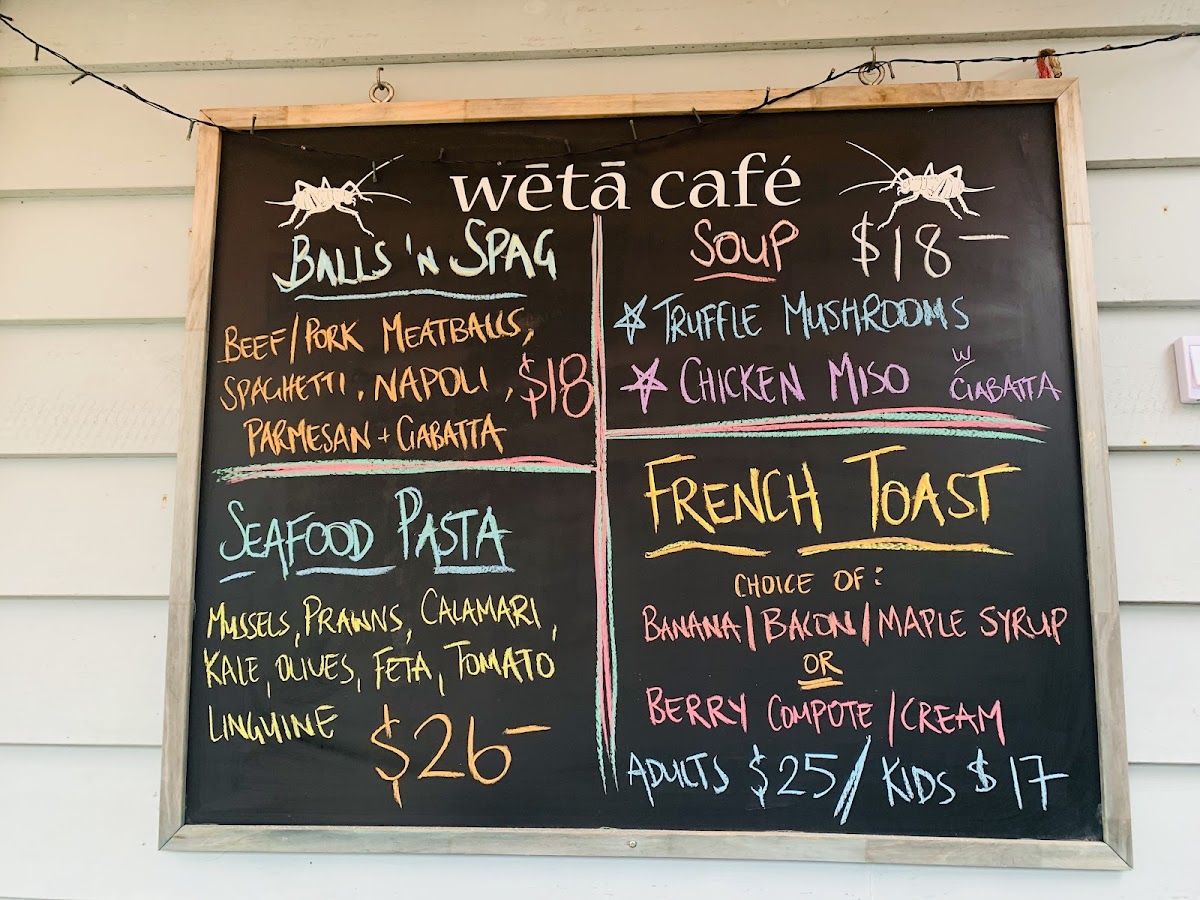 wētā café
BALLS 'N SPAG
BEEF/PORK MEATBALLS,
SPAGHETTI, NAPOLI, $18
PARMESAN + CIABATTA
SEAFOOD PASTA
MUSSELS, PRAWNS, CALAMARI,
KALE, OLIVES, FETA, TOMATO
LINGUINE $26-
SOUP $18-
TRUFFLE MUSHROOMS
CHICKEN MISO W CIABATTA
FRENCH TOAST
CHOICE OF:
BANANA/BACON/MAPLE SYRUP
OR
BERRY COMPOTE/CREAM
ADULTS $25/KIDS $17-